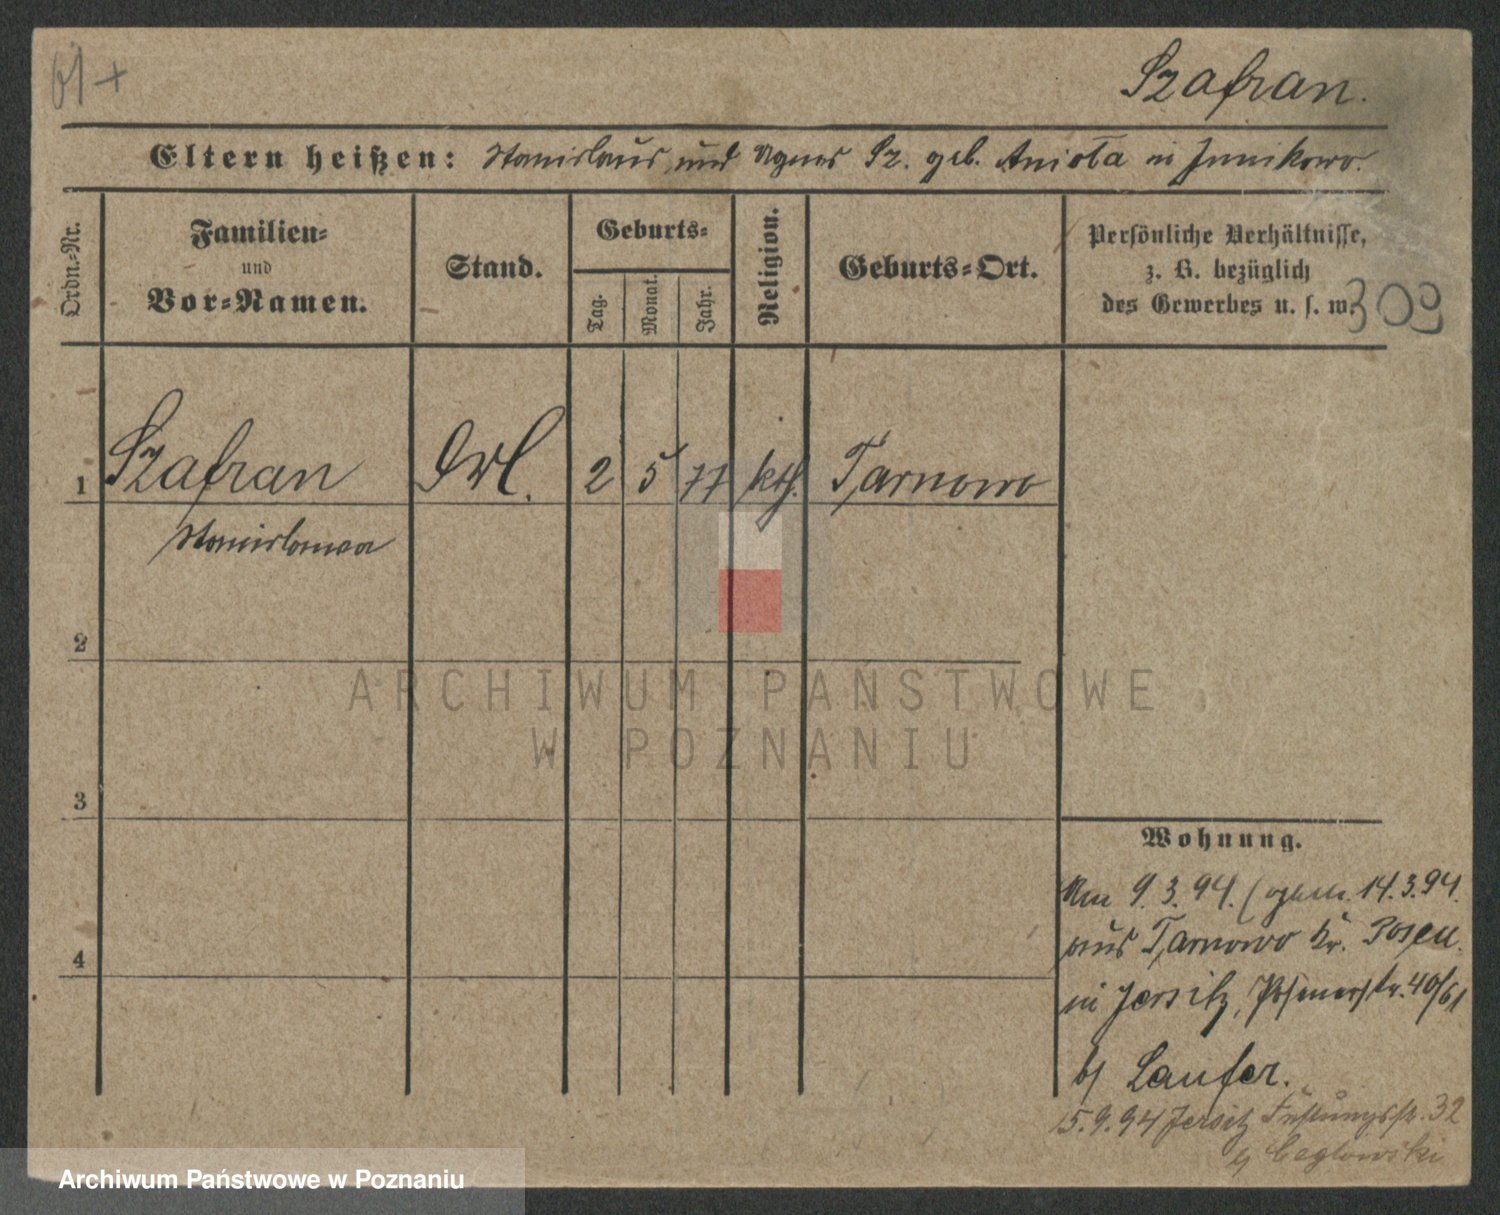 61 +
Szafran.
Eltern heißen: Stanislaus und Agnes Sz. geb. Aniota in Junikowo.
Ordn.-Nr.
Familien-
und
Vor-Namen.
Stand.
Geburts-
Tag.
Monat.
Jahr.
Religion.
Geburts-Ort.
Persönliche Verhältnisse,
z. B. bezüglich
des Gewerbes u. s. w.
309
1 Szafran Frl. 2 5 77 kth. Tarnowo
Stanislawa
2
ARCHIWUM PAŃSTWOWE
W POZNANIU
3
4
Wohnung.
Am 9.3.94. ( 14.3.94.
aus Tarnowo Kr. Posen
in Jersitz, Posenerstr. 40/61
b/ Laufer.
5.9.94 Jersitz Festungsstr. 32
b/ Ceglowski
Archiwum Państwowe w Poznaniu